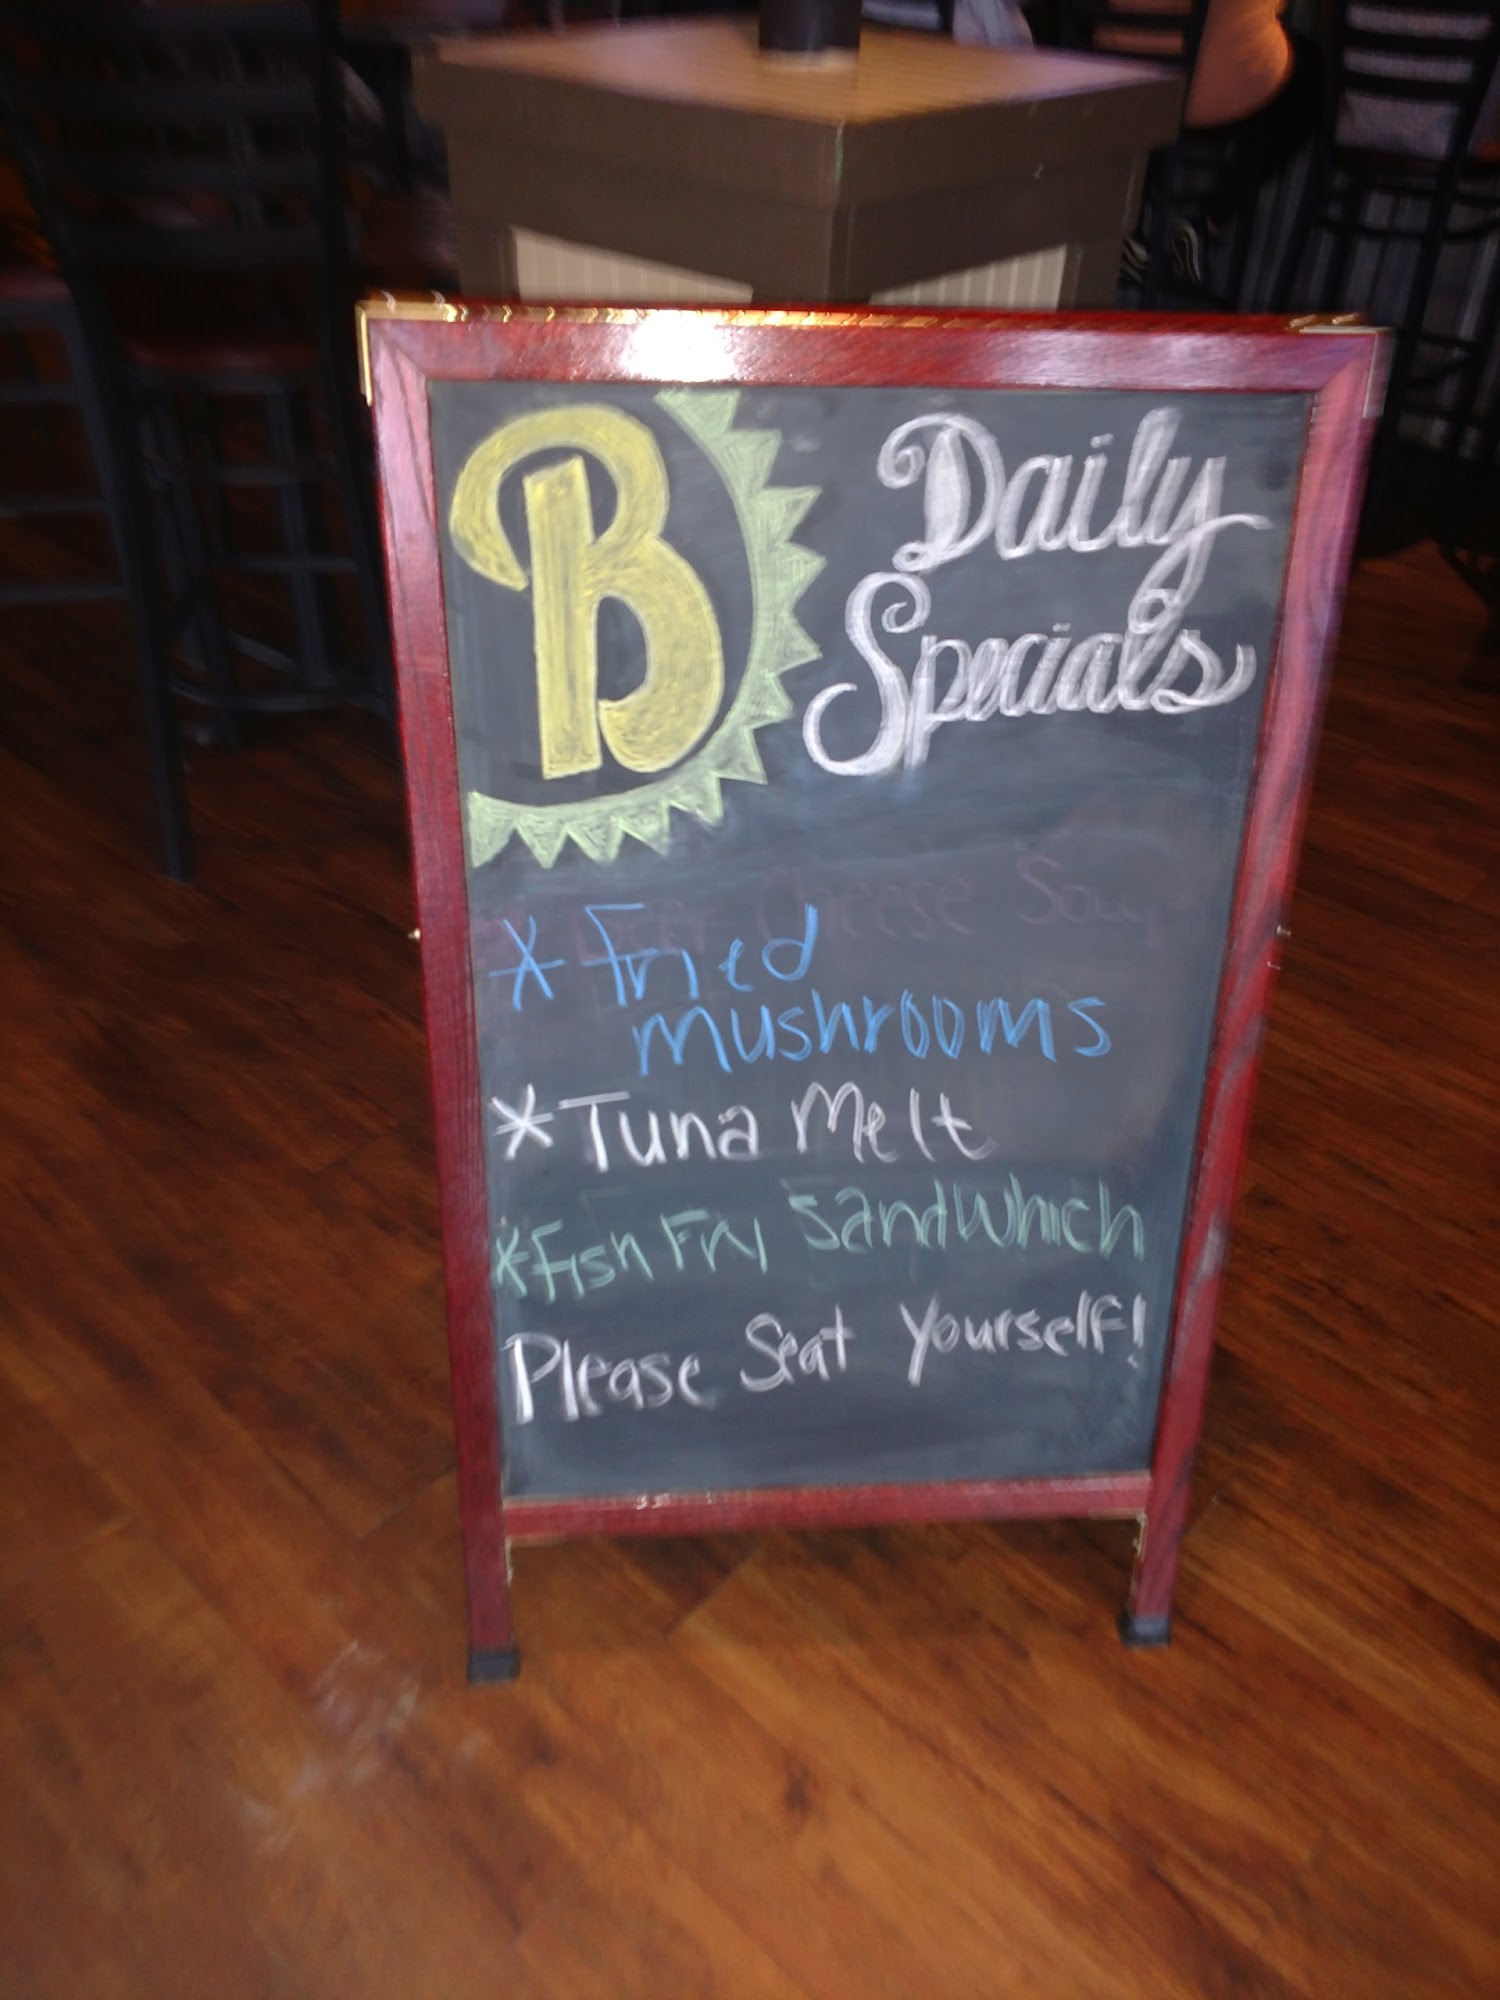 B Daily
Specials
Cheese Soup
* Fried
mushrooms
* Tuna Melt
* Fish Fry Sandwhich
Please Seat Yourself!